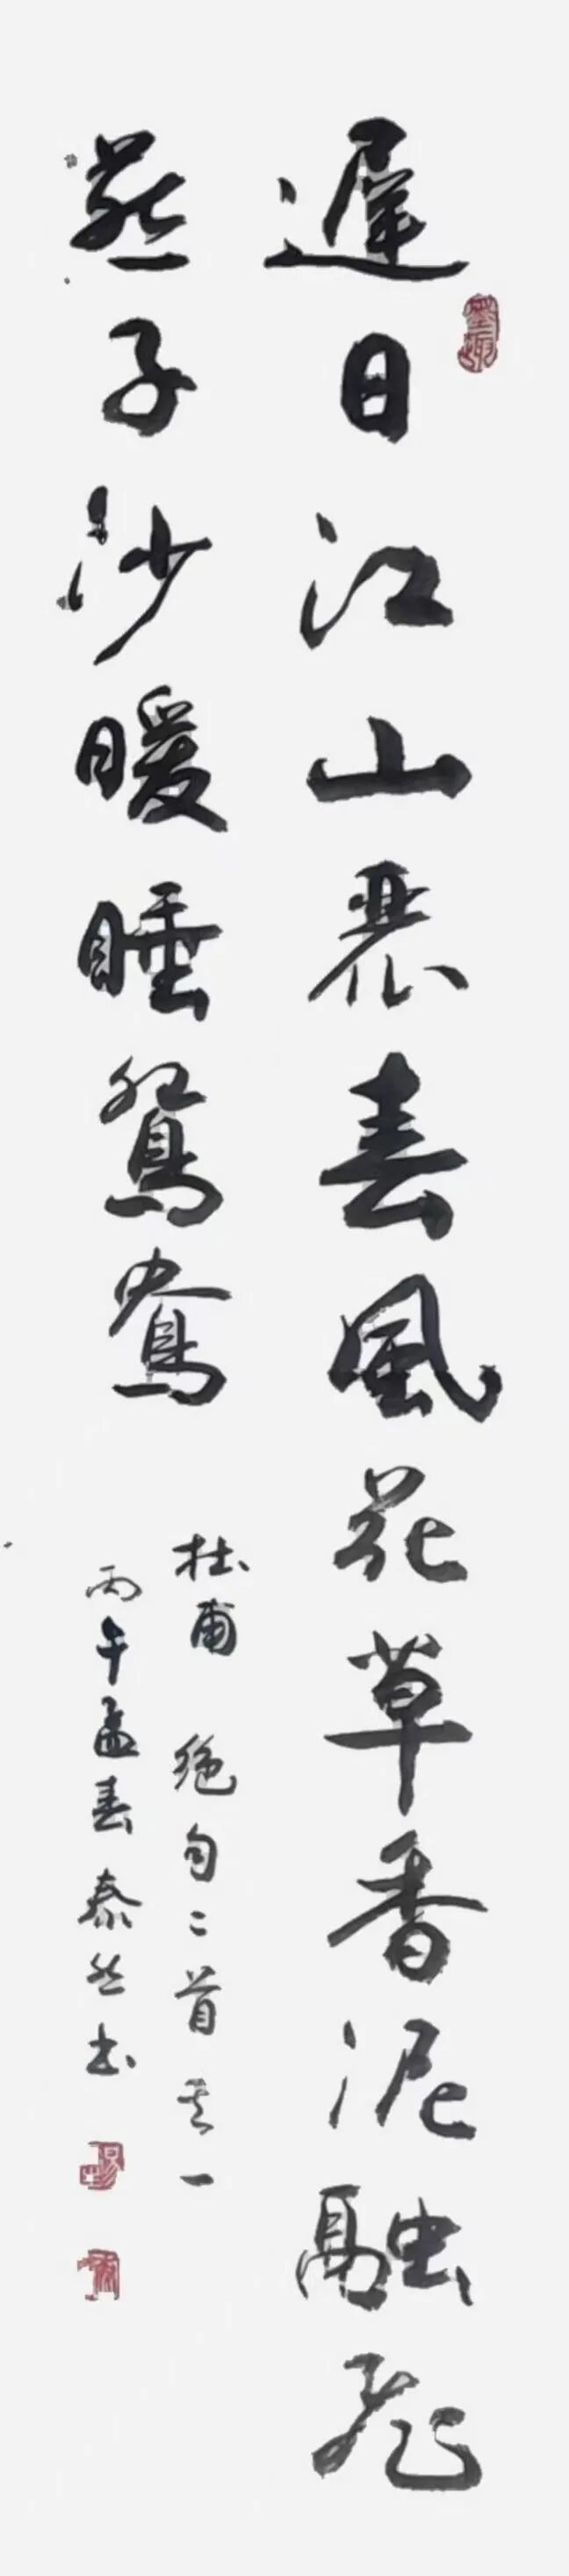 遲日江山麗春風花草香泥融飛
燕子沙暖睡鴛鴦
杜甫 絕句二首其一
丙午孟春泰丛书